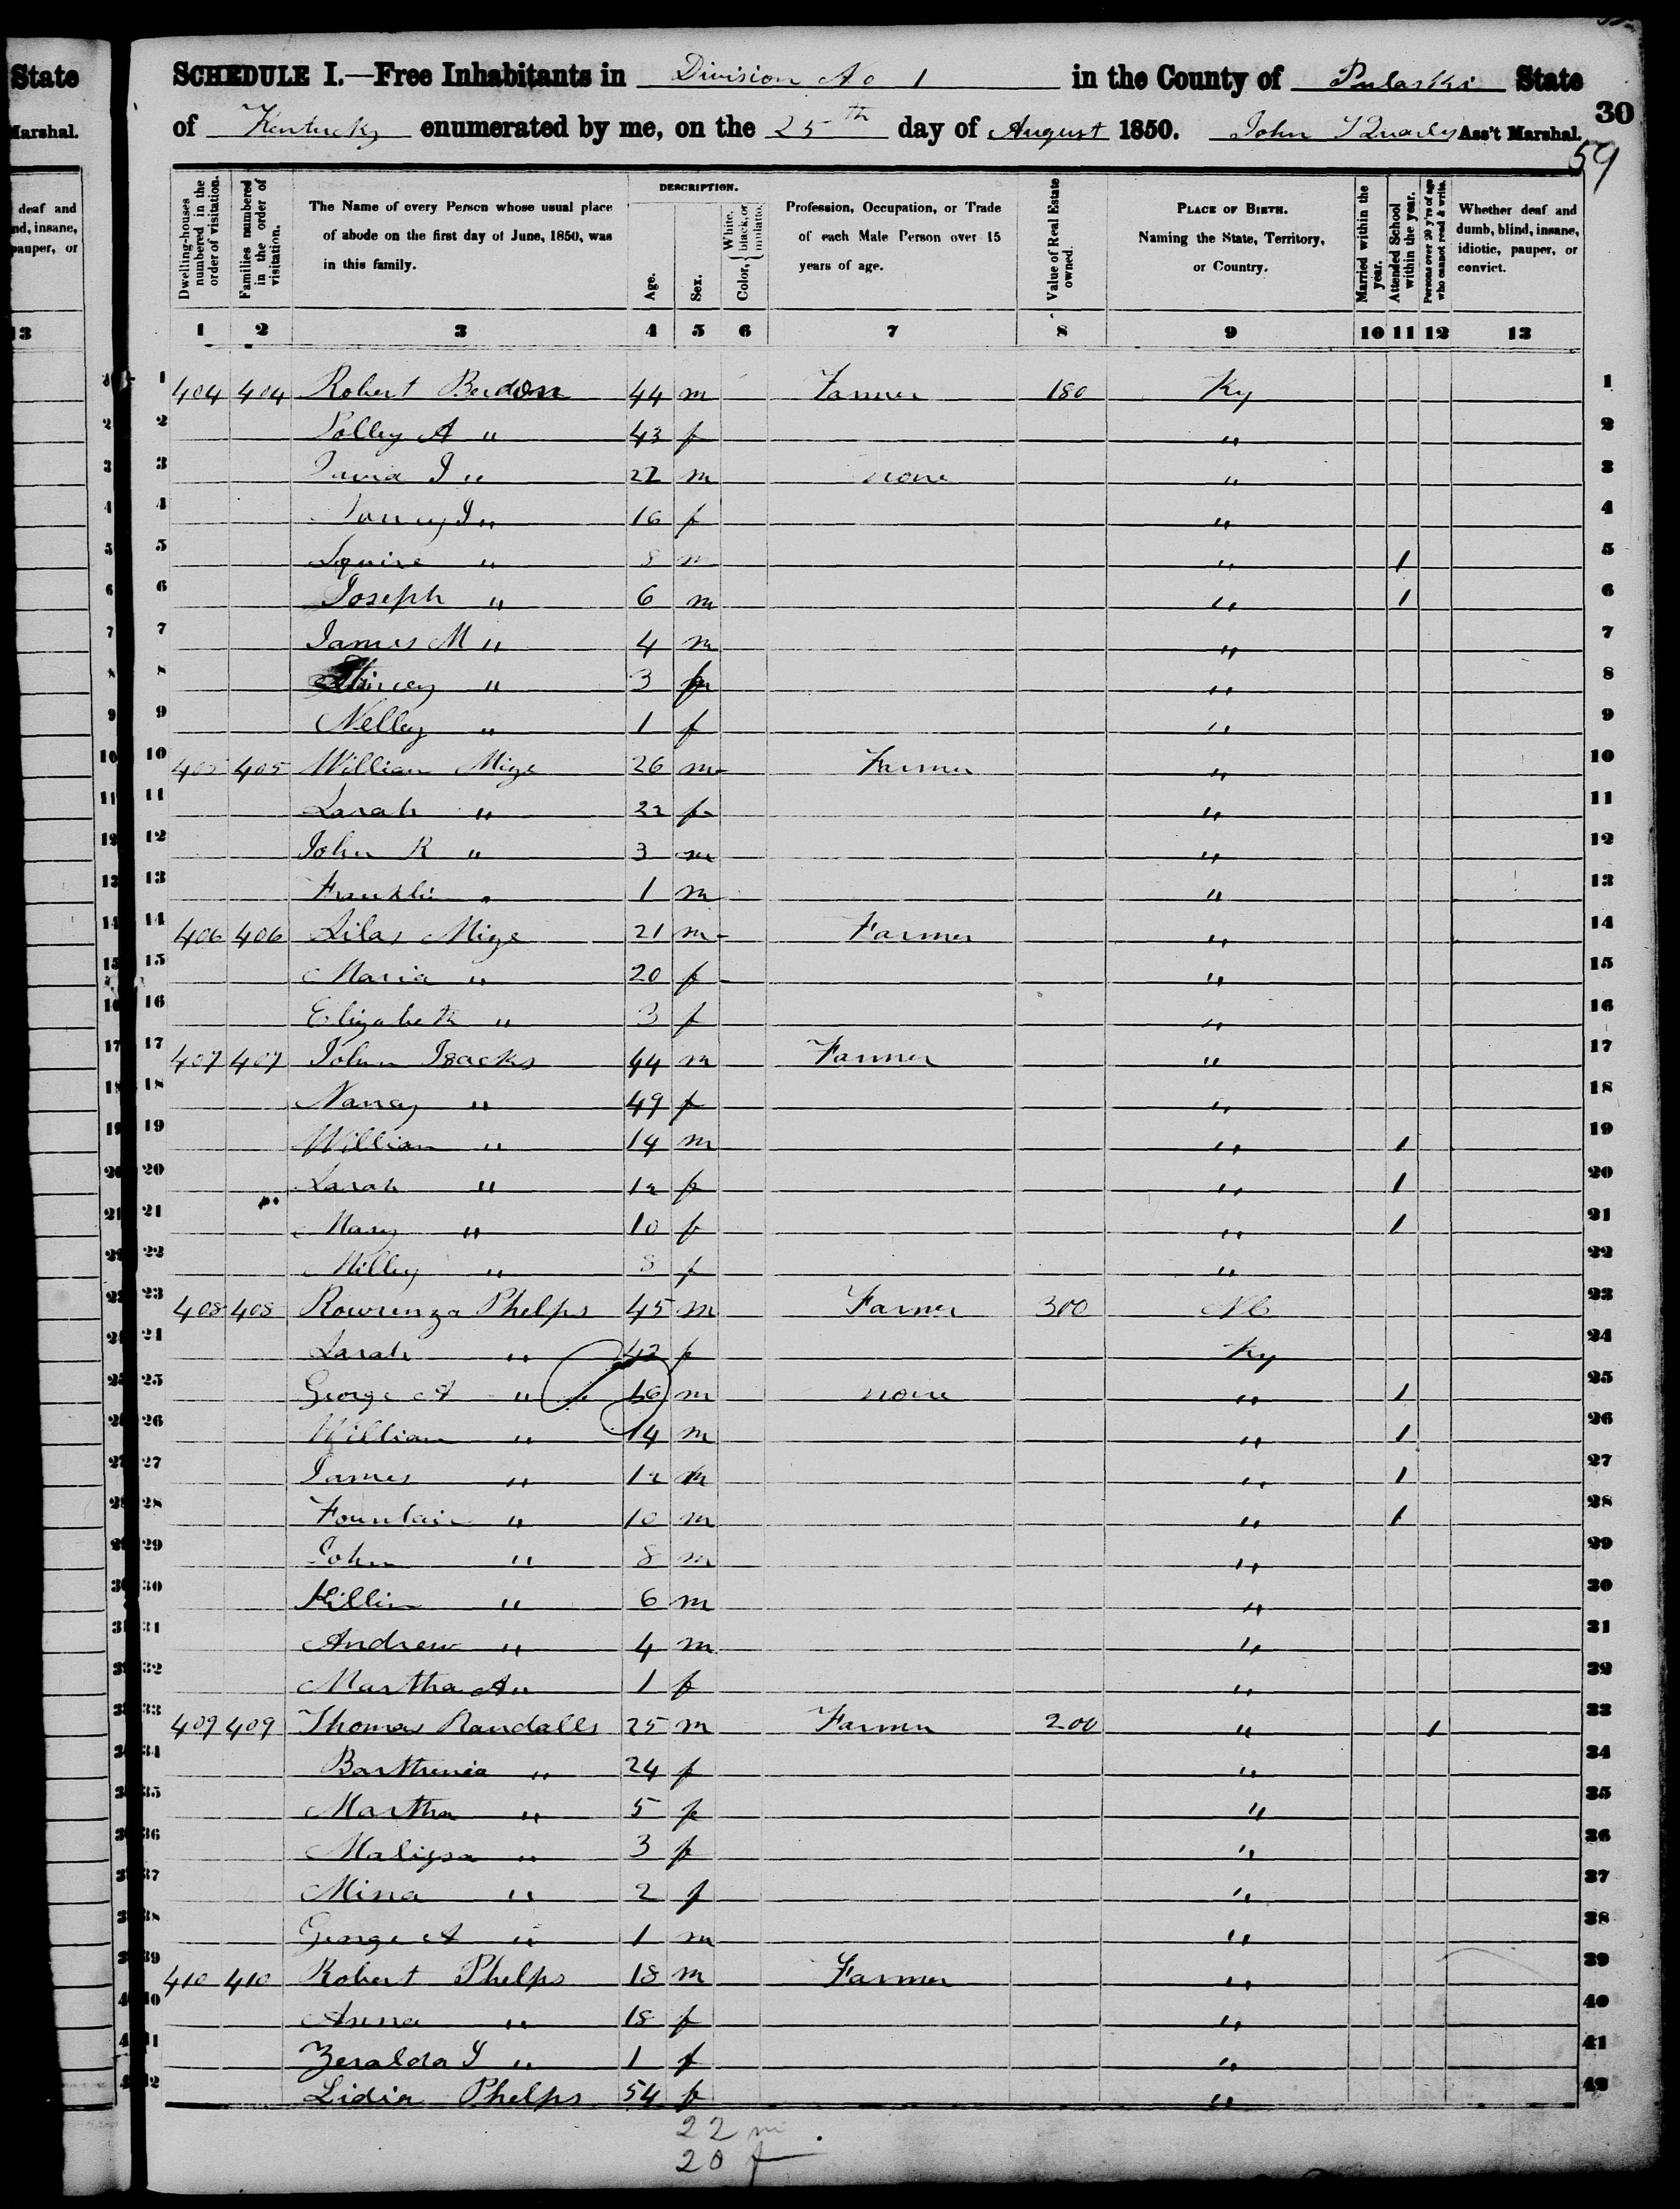 State
Marshal.
deaf and
nd, insane,
pauper, or
13
SCHEDULE I.—Free Inhabitants in Division No 1 in the County of Pulaski State
of Kentucky enumerated by me, on the 25th day of August 1850. John Quarles Ass't Marshal.
30
59
Dwelling-houses numbered in the order of visitation.
Families numbered in the order of visitation.
The Name of every Person whose usual place of abode on the first day of June, 1850, was in this family.
DESCRIPTION.
Age.
Sex.
Color, White, black, or mulatto.
Profession, Occupation, or Trade of each Male Person over 15 years of age.
Value of Real Estate owned.
PLACE OF BIRTH. Naming the State, Territory, or Country.
Married within the year.
Attended School within the year.
Persons over 20 y'rs of age who cannot read & write.
Whether deaf and dumb, blind, insane, idiotic, pauper, or convict.
1 2 3 4 5 6 7 8 9 10 11 12 13
1 404 404 Robert Berdon 44 m Farmer 180 Ky 1
2 Polley A " 43 f " 2
3 David J " 22 m none " 3
4 Nancy J " 16 f " 4
5 Squire " 8 m " 1 5
6 Joseph " 6 m " 1 6
7 James M " 4 m " 7
8 " 3 " 8
9 Nelley " 1 f " 9
10 405 405 William Mize 26 m Farmer " 10
11 Sarah " 22 f " 11
12 John R " 3 m " 12
13 Franklin " 1 m " 13
14 406 406 Silas Mize 21 m Farmer " 14
15 Maria " 20 f " 15
16 Elizabeth " 3 f " 16
17 407 407 John Isacks 44 m Farmer " 17
18 Nancy " 49 f " 18
19 William " 14 m " 1 19
20 Sarah " 12 f " 1 20
21 Mary " 10 f " 1 21
22 Milley " 8 f " 22
23 408 408 Rowrenza Phelps 45 m Farmer 300 NC 23
24 Sarah " 42 f Ky 24
25 George A " 16 m none " 1 25
26 William " 14 m " 1 26
27 James " 12 m " 1 27
28 Fountain " 10 m " 1 28
29 John " 8 m " 29
30 Killin " 6 m " 30
31 Andrew " 4 m " 31
32 Martha A " 1 f " 32
33 409 409 Thomas Randalls 25 m Farmer 200 " 1 33
34 Barthenia " 24 f " 34
35 Martha " 5 f " 35
36 Malissa " 3 f " 36
37 Mina " 2 f " 37
38 George A " 1 m " 38
39 410 410 Robert Phelps 18 m Farmer " 39
40 Anna " 18 f " 40
41 Zeralda J " 1 f " 41
42 Lidia Phelps 54 f " 42
22 m
20 f